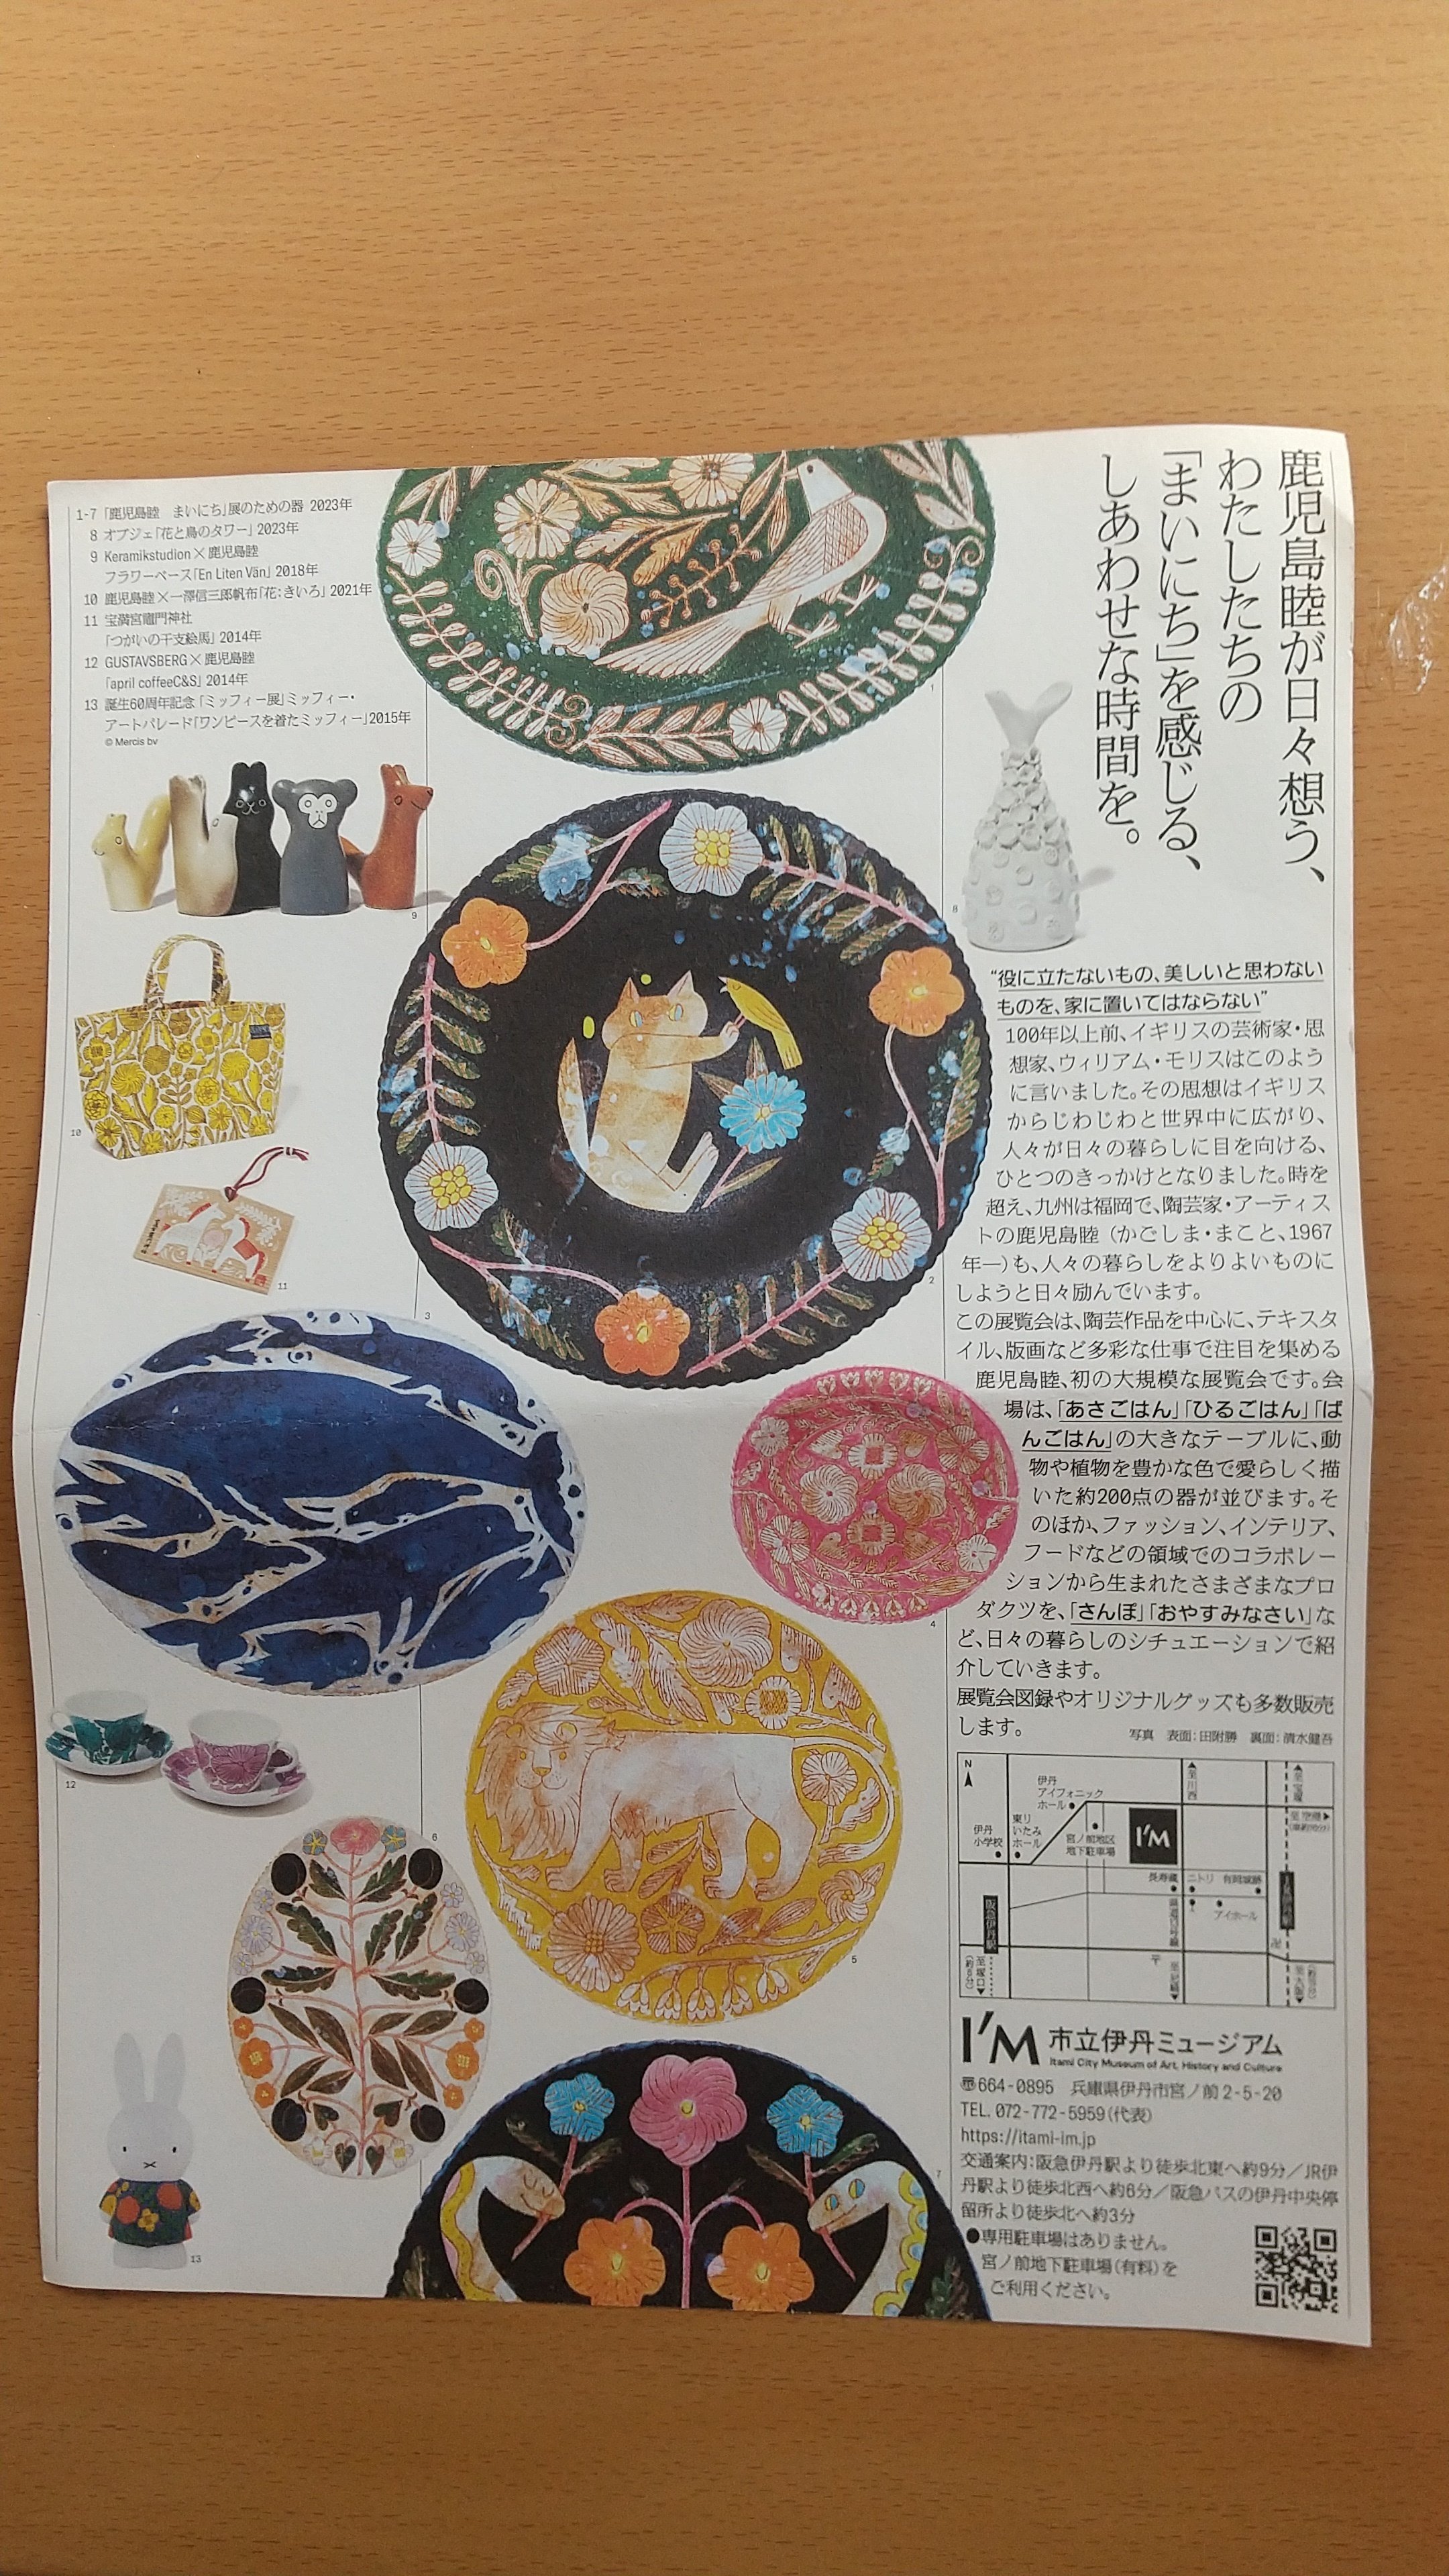 鹿児島睦が日々想う、
わたしたちの
「まいにち」を感じる、
しあわせな時間を。
1-7 「鹿児島睦 まいにち」展のための器 2023年
8 オブジェ「花と鳥のタワー」2023年
9 Keramikstudion×鹿児島睦
フラワーベース「En Liten Vän」2018年
10 鹿児島睦×一澤信三郎帆布「花：きいろ」2021年
11 宝満宮竈門神社
「つがいの干支絵馬」2014年
12 GUSTAVSBERG×鹿児島睦
「april coffeeC&S」2014年
13 誕生60周年記念「ミッフィー展」ミッフィー・
アートパレード「ワンピースを着たミッフィー」2015年
© Mercis bv
1
2
3
4
5
6
7
8
9
10
11
12
13
“役に立たないもの、美しいと思わない
ものを、家に置いてはならない”
100年以上前、イギリスの芸術家・思
想家、ウィリアム・モリスはこのよう
に言いました。その思想はイギリス
からじわじわと世界中に広がり、
人々が日々の暮らしに目を向ける、
ひとつのきっかけとなりました。時を
超え、九州は福岡で、陶芸家・アーティス
トの鹿児島睦（かごしま・まこと、1967
年―）も、人々の暮らしをよりよいものに
しようと日々励んでいます。
この展覧会は、陶芸作品を中心に、テキスタ
イル、版画など多彩な仕事で注目を集める
鹿児島睦、初の大規模な展覧会です。会
場は、「あさごはん」「ひるごはん」「ば
んごはん」の大きなテーブルに、動
物や植物を豊かな色で愛らしく描
いた約200点の器が並びます。そ
のほか、ファッション、インテリア、
フードなどの領域でのコラボレー
ションから生まれたさまざまなプロ
ダクツを、「さんぽ」「おやすみなさい」な
ど、日々の暮らしのシチュエーションで紹
介していきます。
展覧会図録やオリジナルグッズも多数販売
します。
写真 表面：田附勝 裏面：清水健吾
N
伊丹
アイフォニック
ホール
東リ
いたみ
ホール
伊丹
小学校
宮ノ前地区
地下駐車場
I'M
至川西
至宝塚
至空港
長寿蔵
ニトリ
有岡城跡
アイホール
阪急伊丹駅
至塚口
I'M 市立伊丹ミュージアム
Itami City Museum of Art, History and Culture
〒664-0895 兵庫県伊丹市宮ノ前2-5-20
TEL. 072-772-5959（代表）
https://itami-im.jp
交通案内：阪急伊丹駅より徒歩北東へ約9分／JR伊
丹駅より徒歩北西へ約6分／阪急バスの伊丹中央停
留所より徒歩北へ約3分
●専用駐車場はありません。
宮ノ前地下駐車場（有料）を
ご利用ください。